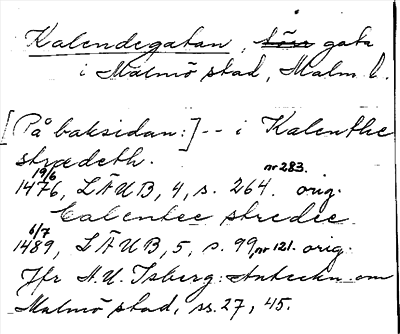 Kalendegatan, förr gata
i Malmö stad, Malm. l.
[På baksidan:] -- i Kalenthe
strædeth.
19/6 nr 283.
1476, LÄUB, 4, s. 264. orig.
Calentee stredee
6/7
1489, LÄUB, 5, s. 99 nr 121. orig.
Jfr A.U. Isberg: Anteckn. om
Malmö stad, ss. 27, 45.